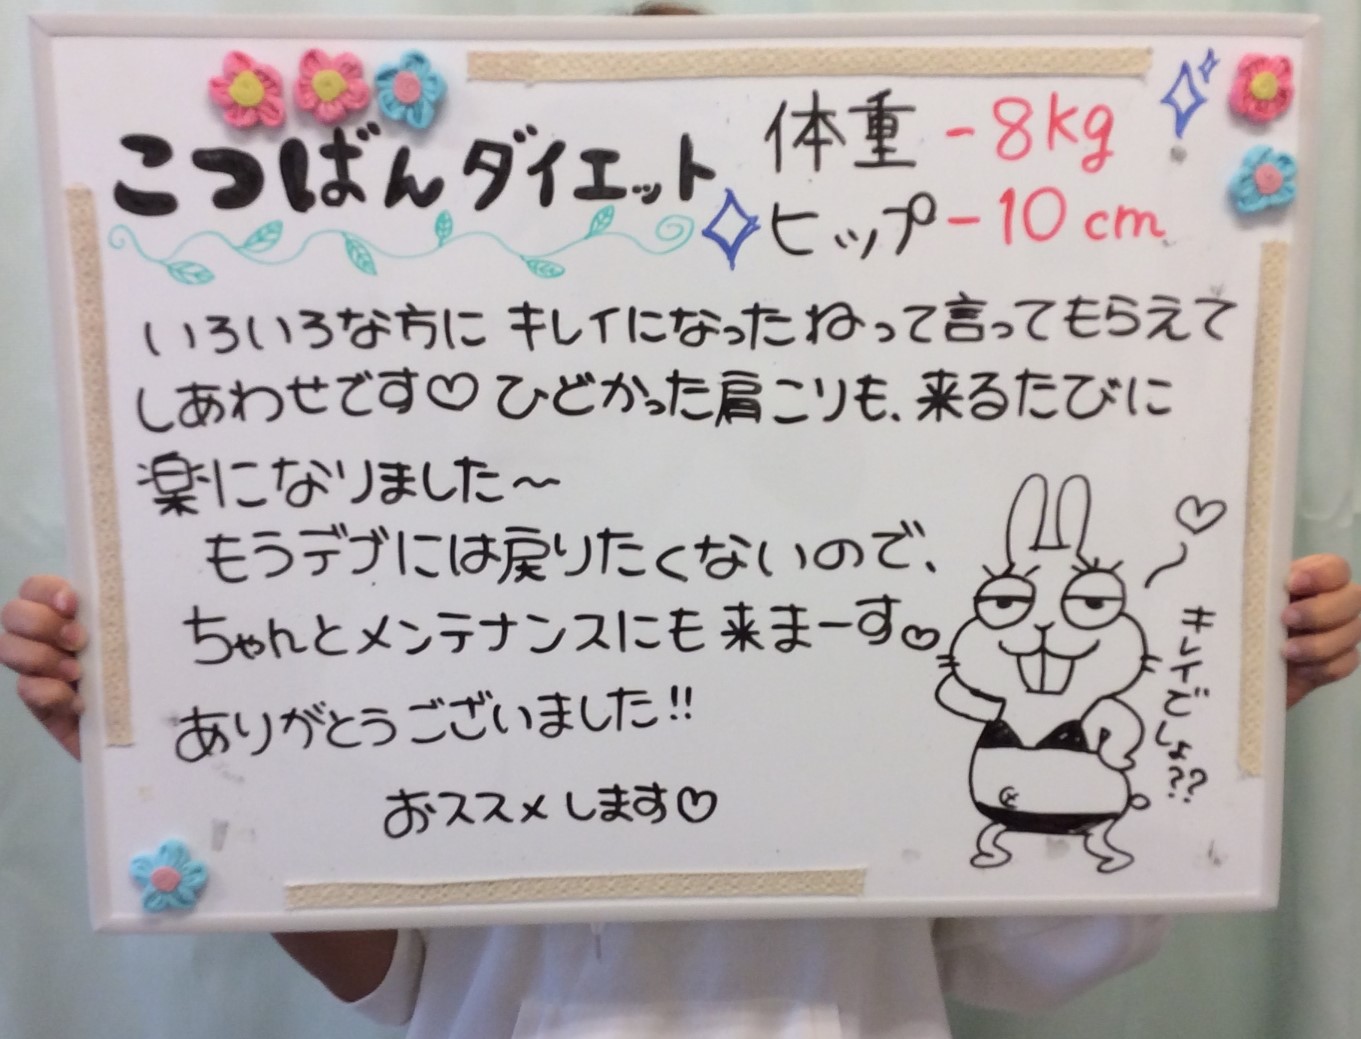 こつばんダイエット
体重 -8kg
ヒップ -10cm
いろいろな方に キレイになったねって言ってもらえて
しあわせです♡ ひどかった肩こりも、来るたびに
楽になりました〜
もうデブには戻りたくないので、
ちゃんとメンテナンスにも来まーす♡
ありがとうございました!!
おススメします♡
キレイでしょ??